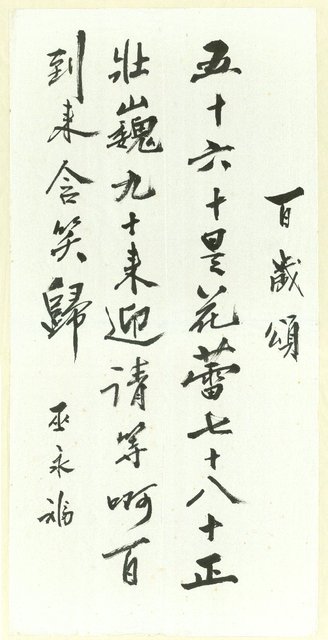 百歲頌
五十六十是花蕾七十八十正
壯巍九十來迎請等啊百
到来含笑歸
巫永福